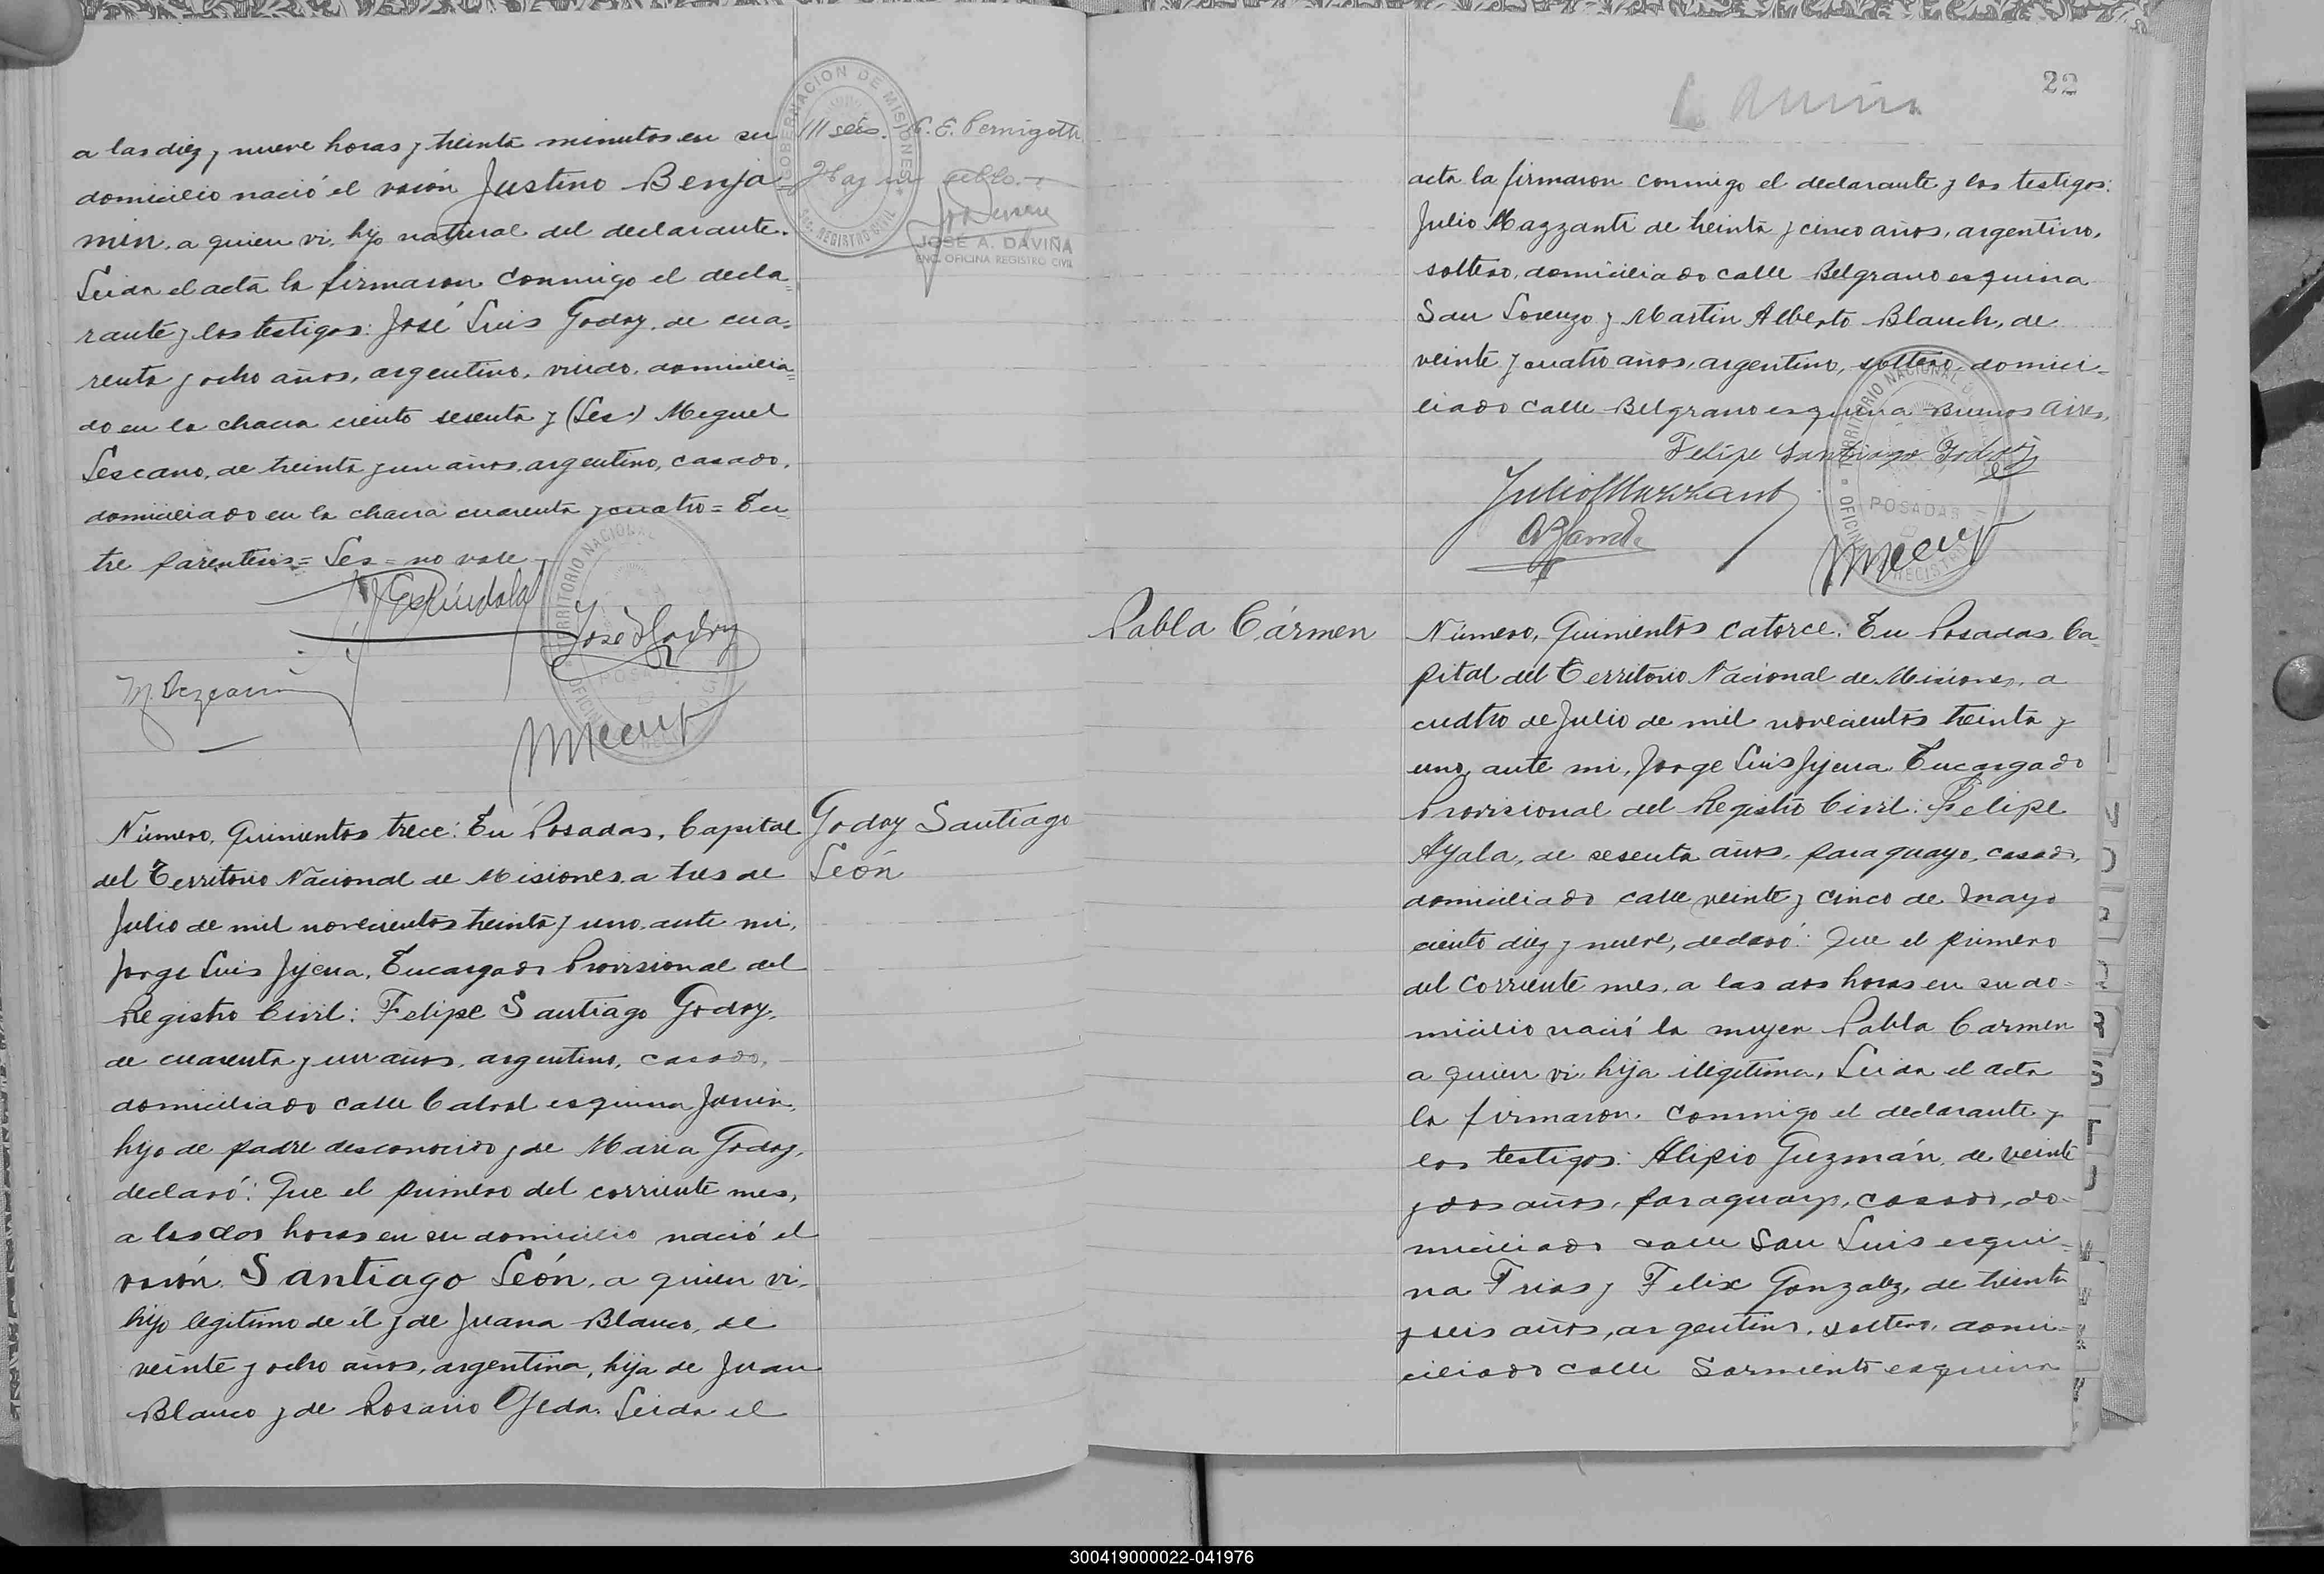 a las diez y nueve horas y treinta minutos en su
domicilio nació el varón Justino Benja-
min, a quien vi, hijo natural del declarante.
Leida el acta la firmaron conmigo el decla-
rante y los testigos: José Luis Godoy, de cua-
renta y ocho años, argentino, viudo, domicilia-
do en la chacra ciento sesenta y (Les) Miguel
Lescano, de treinta y un años, argentino, casado,
domiciliado en la chacra cuarenta y cuatro = En-
tre parentesis = Les = no vale
TERRITORIO NACIONAL
POSADAS
GOBERNACION DE MISIONES
REGISTRO CIVIL
C. E. Pernigotti
JOSE A. DAVIÑA
ENC. OFICINA REGISTRO CIVIL
Número, Quinientos trece: En Posadas, Capital
del Territorio Nacional de Misiones, a tres de
Julio de mil novecientos treinta y uno, ante mi,
Jorge Luis Jijena, Encargado Provisional del
Registro Civil: Felipe Santiago Godoy,
de cuarenta y un años, argentino, casado,
domiciliado calle Cabral esquina Junin,
hijo de padre desconocido y de Maria Godoy,
declaró: Que el primero del corriente mes,
a las dos horas en su domicilio nació el
varón Santiago León, a quien vi,
hijo legitimo de él y de Juana Blanco, de
veinte y ocho años, argentina, hija de Juan
Blanco y de Rosario Ojeda. Leida el
Godoy Santiago
León
22
acta la firmaron conmigo el declarante y los testigos:
Julio Mazzanti de treinta y cinco años, argentino,
soltero, domiciliado calle Belgrano esquina
San Lorenzo y Martin Alberto Blanch, de
veinte y cuatro años, argentino, soltero, domici-
liado calle Belgrano esquina Buenos Aires,
Felipe Santiago Godoy
Julio Mazzanti
TERRITORIO NACIONAL
POSADAS
OFICINA REGISTRO
Pabla Cármen
Número, Quinientos catorce: En Posadas, Ca-
pital del Territorio Nacional de Misiones, a
cuatro de Julio de mil novecientos treinta y
uno, ante mi, Jorge Luis Jijena Encargado
Provisional del Registro Civil: Felipe
Ayala, de sesenta años, paraguayo, casado,
domiciliado calle veinte y cinco de Mayo
ciento diez y nueve, declaró: Que el primero
del corriente mes, a las dos horas en su do-
micilio nació la mujer Pabla Carmen
a quien vi, hija ilegitima, Leida el acta
la firmaron, conmigo el declarante y
los testigos: Alipio Guzmán, de veinte
y dos años, paraguayo, casado, do-
miciliado calle San Luis esqui-
na Frias y Felix Gonzalez, de treinta
y seis años, argentino, soltero, domi-
ciliado calle Sarmiento esquina
300419000022-041976